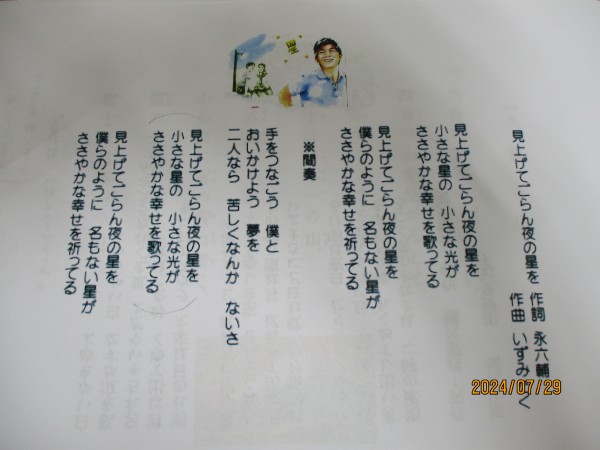 星
見上げてごらん夜の星を 作詞 永六輔
作曲 いずみたく
見上げてごらん夜の星を
小さな星の 小さな光が
ささやかな幸せを歌ってる
見上げてごらん夜の星を
僕らのように 名もない星が
ささやかな幸せを祈ってる
※間奏
手をつなごう 僕と
おいかけよう 夢を
二人なら 苦しくなんか ないさ
(見上げてごらん夜の星を
小さな星の 小さな光が
ささやかな幸せを歌ってる)
見上げてごらん夜の星を
僕らのように 名もない星が
ささやかな幸せを祈ってる
2024/07/29